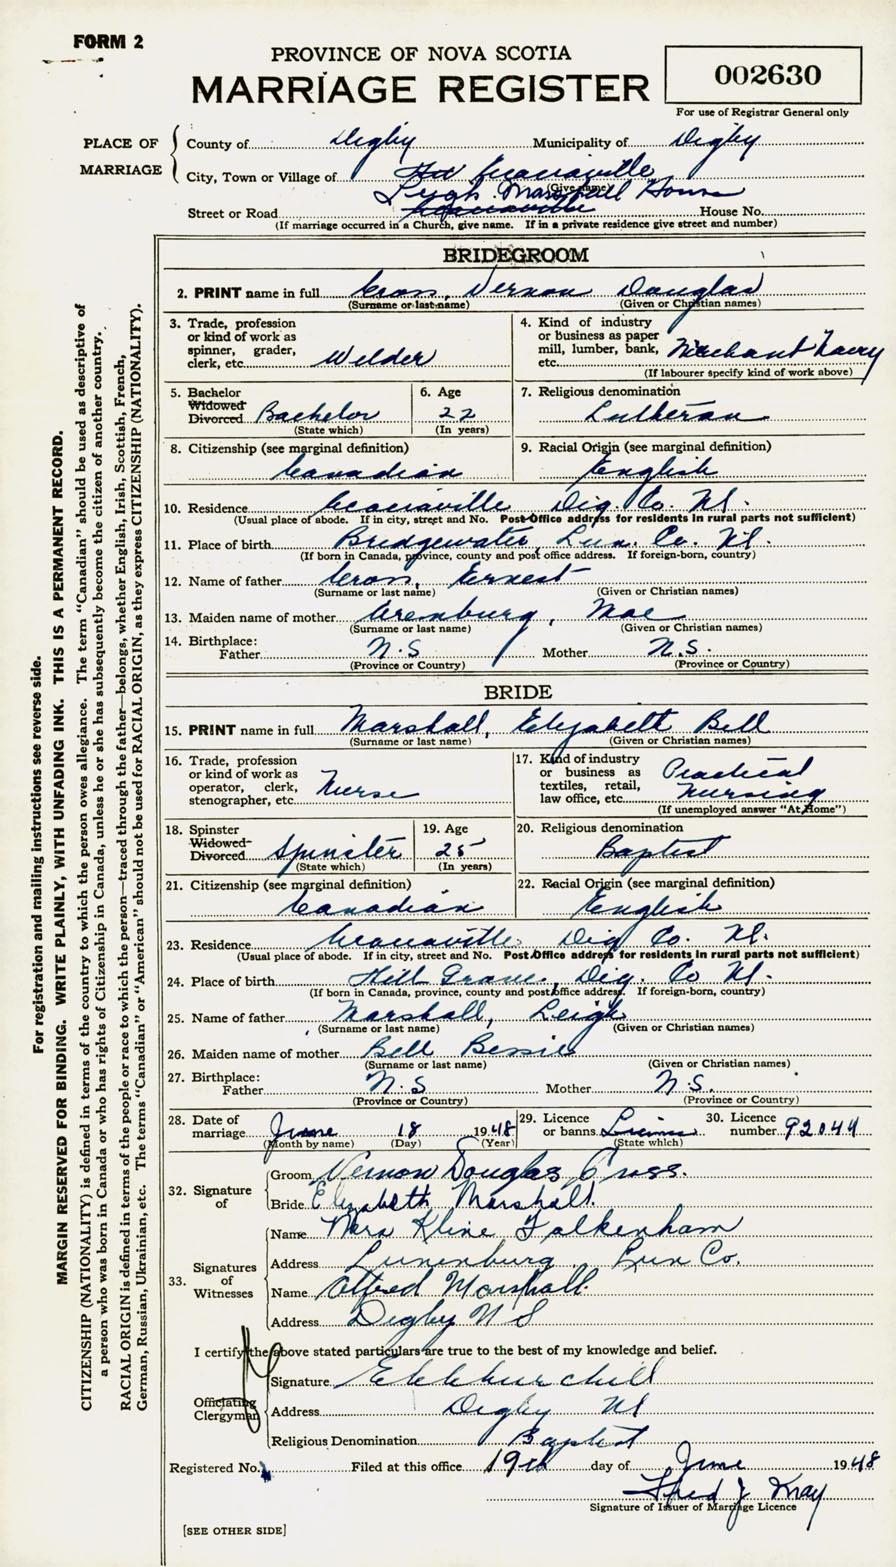 FORM 2
PROVINCE OF NOVA SCOTIA
MARRIAGE REGISTER
002630
For use of Registrar General only
PLACE OF MARRIAGE
County of Digby Municipality of Digby
City, Town or Village of Acaciaville
(Give name)
Leigh Marshall Home
Street or Road House No.
(If marriage occurred in a Church, give name. If in a private residence give street and number)
BRIDEGROOM
2. PRINT name in full Cross, Vernon Douglas
(Surname or last name) (Given or Christian names)
3. Trade, profession or kind of work as spinner, grader, clerk, etc. Welder
4. Kind of industry or business as paper mill, lumber, bank, etc. Merchant Navy
(If labourer specify kind of work above)
5. Bachelor Widowed Divorced Bachelor
(State which)
6. Age 22
(In years)
7. Religious denomination Lutheran
8. Citizenship (see marginal definition) Canadian
9. Racial Origin (see marginal definition) English
10. Residence Acaciaville Dig. Co. N.S.
(Usual place of abode. If in city, street and No. Post Office address for residents in rural parts not sufficient)
11. Place of birth Bridgewater, Lun. Co. N.S.
(If born in Canada, province, county and post office address. If foreign-born, country)
12. Name of father Cross, Ernest
(Surname or last name) (Given or Christian names)
13. Maiden name of mother Mae
(Surname or last name) (Given or Christian names)
14. Birthplace: Father N.S Mother N.S.
(Province or Country) (Province or Country)
BRIDE
15. PRINT name in full Marshall, Elizabeth Bell
(Surname or last name) (Given or Christian names)
16. Trade, profession or kind of work as operator, clerk, stenographer, etc. Nurse
17. Kind of industry or business as textiles, retail, law office, etc. Practical Nursing
(If unemployed answer "At Home")
18. Spinster Widowed Divorced Spinster
(State which)
19. Age 25
(In years)
20. Religious denomination Baptist
21. Citizenship (see marginal definition) Canadian
22. Racial Origin (see marginal definition) English
23. Residence Acaciaville, Dig Co. N.S.
(Usual place of abode. If in city, street and No. Post Office address for residents in rural parts not sufficient)
24. Place of birth Hill Grove, Dig. Co N.S.
(If born in Canada, province, county and post office address. If foreign-born, country)
25. Name of father Marshall, Leigh
(Surname or last name) (Given or Christian names)
26. Maiden name of mother Bell Bessie
(Surname or last name) (Given or Christian names)
27. Birthplace: Father N.S Mother N.S.
(Province or Country) (Province or Country)
28. Date of marriage June 18 1948
(Month by name) (Day) (Year)
29. Licence or banns License
(State which)
30. Licence number 92044
32. Signature of
Groom Vernon Douglas Cross.
Bride Elizabeth Marshall.
33. Signatures of Witnesses
Name Mrs Kline Falkenham
Address Lunenburg Lun Co.
Name Alfred Marshall.
Address Digby N S
I certify the above stated particulars are true to the best of my knowledge and belief.
Officiating Clergyman
Signature
Address Digby NS
Religious Denomination Baptist
Registered No. Filed at this office 19th day of June 1948
Fred J Kray
Signature of Issuer of Marriage Licence
[SEE OTHER SIDE]
For registration and mailing instructions see reverse side.
MARGIN RESERVED FOR BINDING. WRITE PLAINLY, WITH UNFADING INK. THIS IS A PERMANENT RECORD.
CITIZENSHIP (NATIONALITY) is defined in terms of the country to which the person owes allegiance. The term "Canadian" should be used as descriptive of
a person who was born in Canada or who has rights of Citizenship in Canada, unless he or she has subsequently become the citizen of another country.
RACIAL ORIGIN is defined in terms of the people or race to which the person—traced through the father—belongs, whether English, Irish, Scottish, French,
German, Russian, Ukrainian, etc. The terms "Canadian" or "American" should not be used for RACIAL ORIGIN, as they express CITIZENSHIP (NATIONALITY).